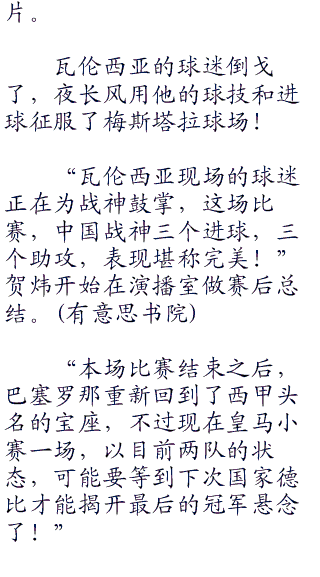 片。
瓦伦西亚的球迷倒戈
了，夜长风用他的球技和进
球征服了梅斯塔拉球场！
“瓦伦西亚现场的球迷
正在为战神鼓掌，这场比
赛，中国战神三个进球，三
个助攻，表现堪称完美！”
贺炜开始在演播室做赛后总
结。(有意思书院)
“本场比赛结束之后，
巴塞罗那重新回到了西甲头
名的宝座，不过现在皇马小
赛一场，以目前两队的状
态，可能要等到下次国家德
比才能揭开最后的冠军悬念
了！”